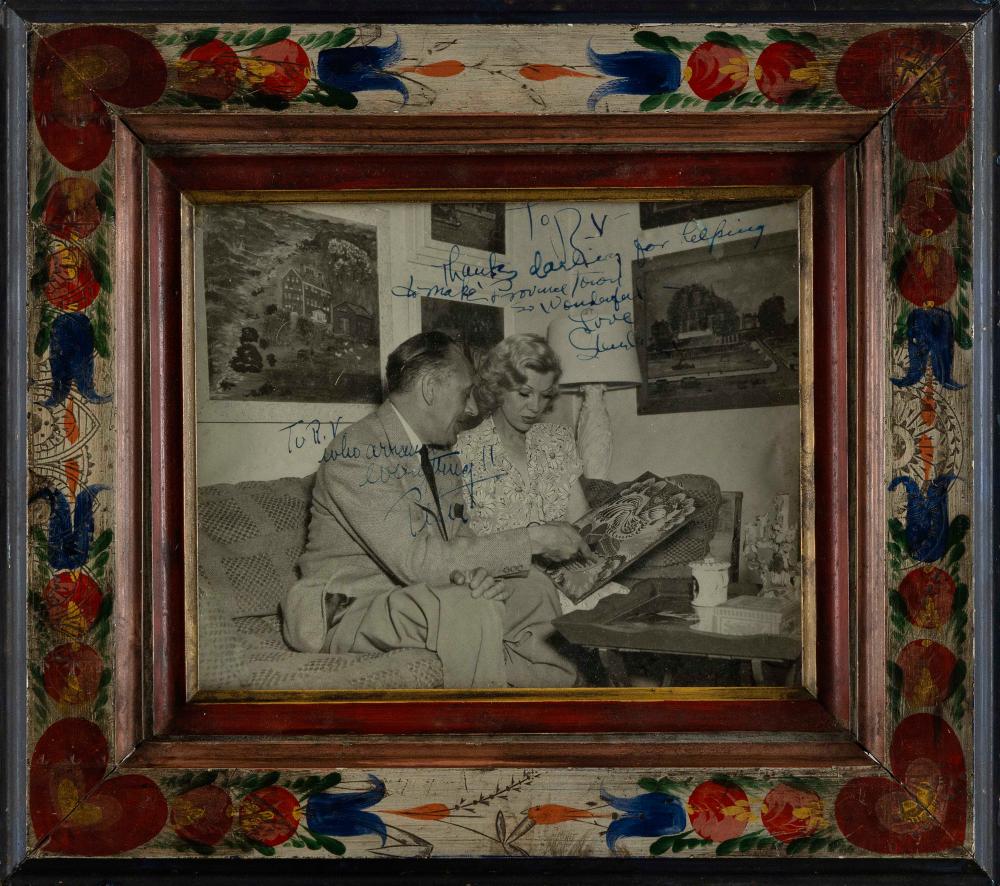 To R.V.
thanks darling for helping
to make Provincetown
so wonderful
Love
To R.V.
who arranges
everything!!